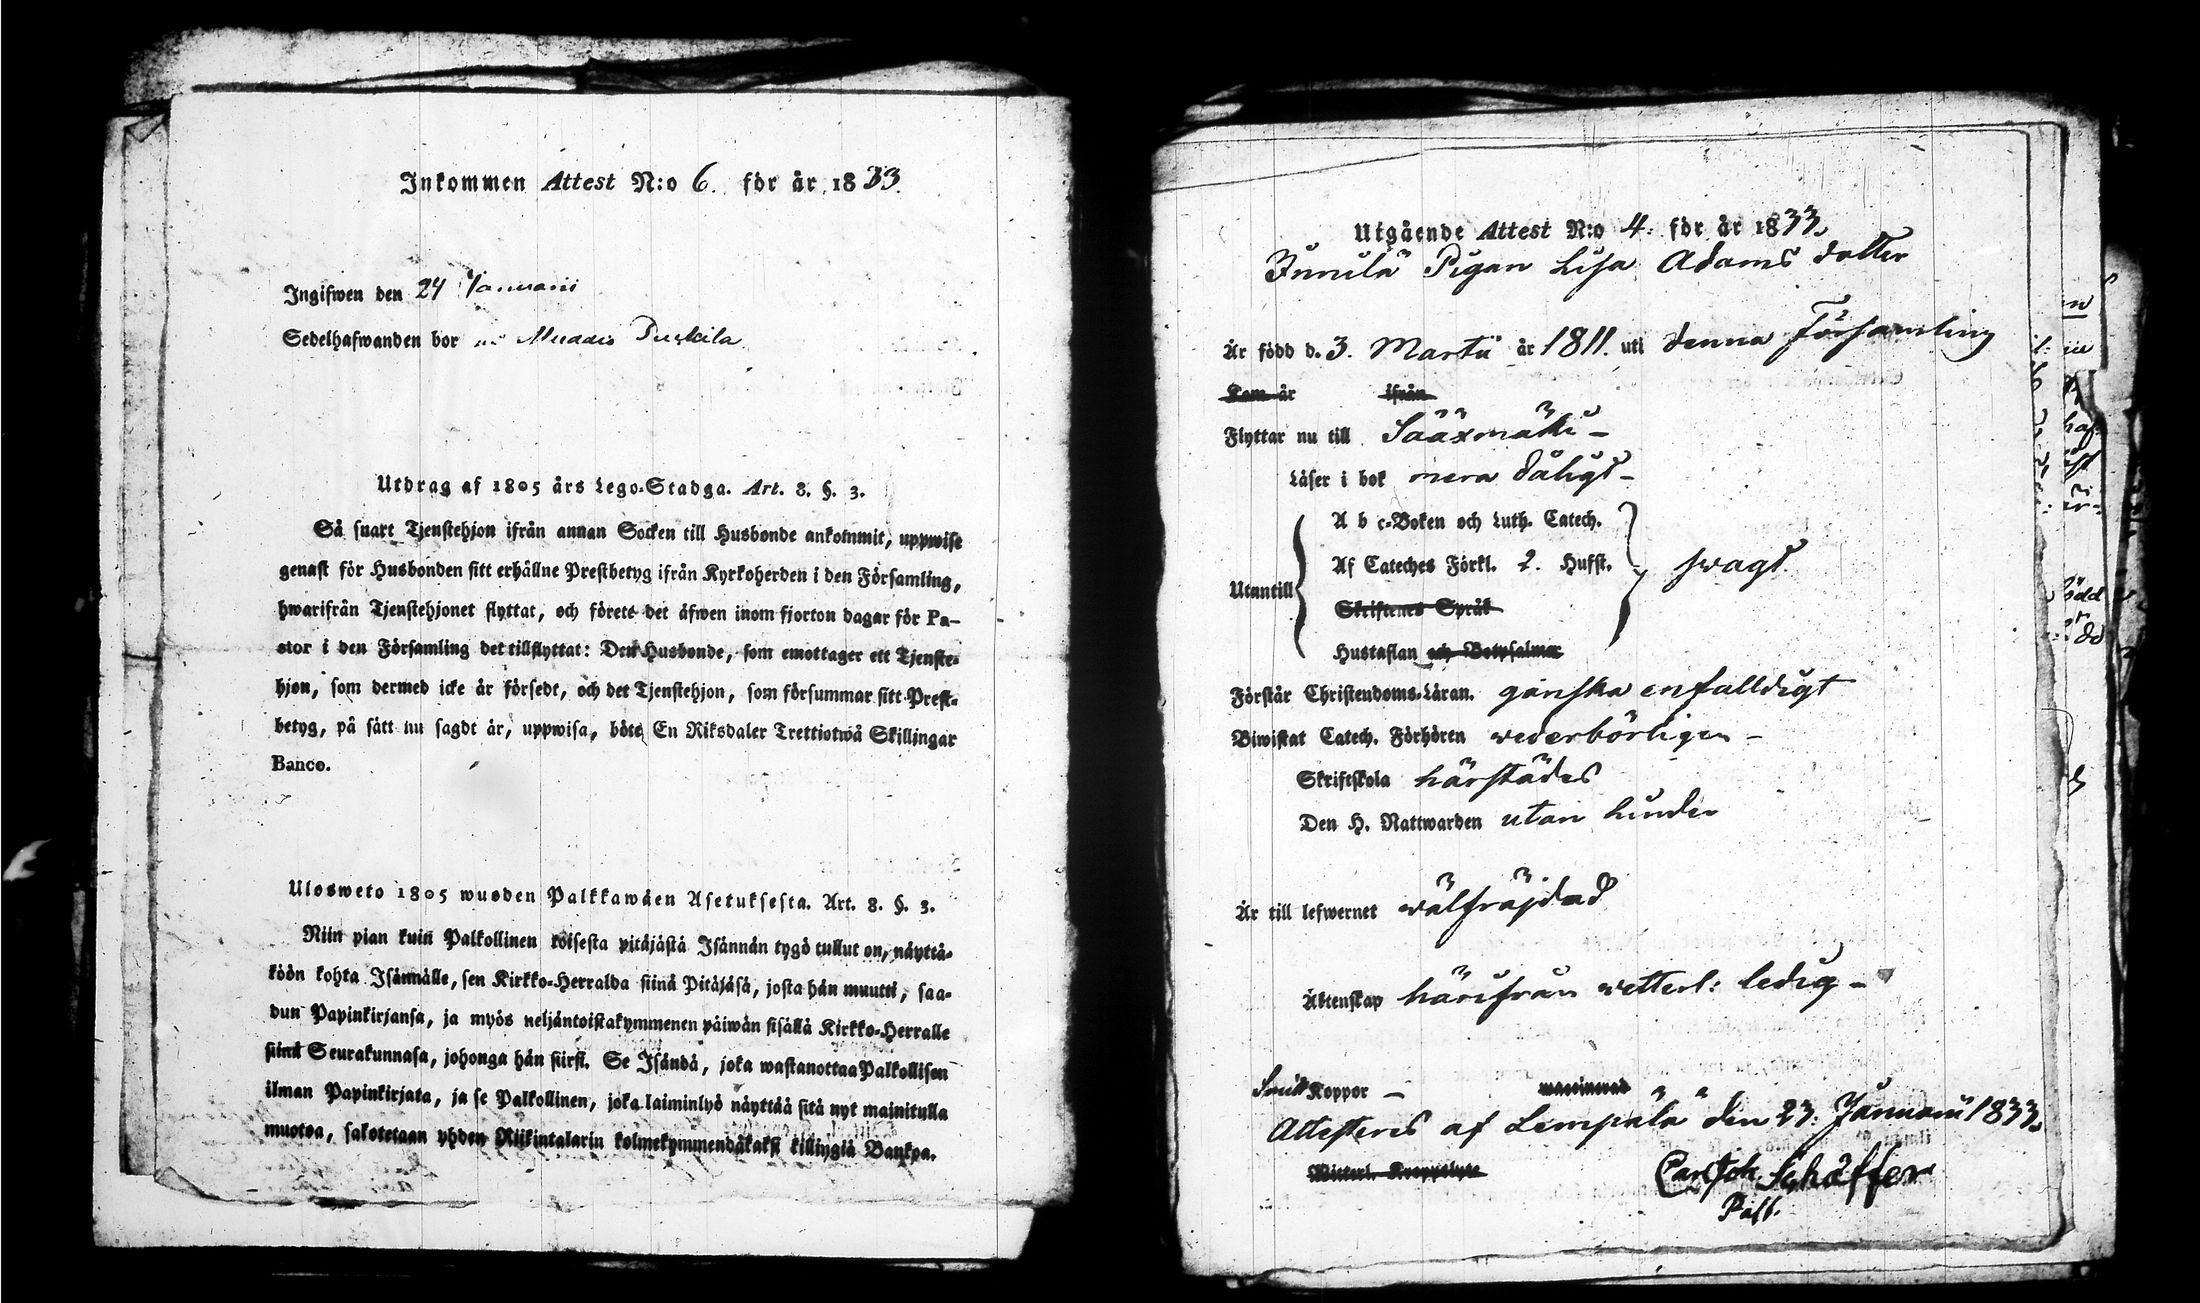 Inkommen Attest N:o 6. för år 1833.
Ingifwen den 24 Januarii
Sedelhafwanden bor
Utdrag af 1805 års Lego-Stadga. Art. 8. §. 3.
Så snart Tjenstehjon ifrån annan Socken till Husbonde ankommit, uppwise
genast för Husbonden sitt erhållne Prestbetyg ifrån Kyrkoherden i den Församling,
hwarifrån Tjenstehjonet flyttat, och förete det äfwen inom fjorton dagar för Pa-
stor i den Församling det tillflyttat: Den Husbonde, som emottager ett Tjenste-
hjon, som dermed icke är försedt, och det Tjenstehjon, som försummar sitt Prest-
betyg, på sätt nu sagdt är, uppwisa, böte En Riksdaler Trettiotwå Skillingar
Banco.
Ulosweto 1805 wuoden Palkkawäen Asetuksesta. Art. 8. §. 3.
Niin pian kuin Palkollinen toisesta pitäjästä Isännän tygö tullut on, näyttä-
köön kohta Isännälle, sen Kirkko-Herralda siinä Pitäjäsä, josta hän muutti, saa-
dun Papinkirjansa, ja myös neljäntoistakymmenen päiwän sisällä Kirkko-Herralle
siinä Seurakunnasa, johonga hän siirsi. Se Isändä, joka wastanottaa Palkollisen
ilman Papinkirjata, ja se Palkollinen, joka laiminlyö näyttää sitä nyt mainitulla
muotoa, sakotetaan yhden Riikintalarin kolmekymmendäkaksi killingiä Bankoa.
Utgående Attest N:o 4. för år 1833.
Pigan Lisa Adams dotter
Är född d. 3. Martii år 1811. uti denna Församling
Kom år ifrån
Flyttar nu till Sääxmäki –
Läser i bok mera dåligt –
Utantill
A b c-Boken och Luth. Catech.
Af Cateches Förkl. 2. Hufst.
swagt
Skriftenes Språk
Hustaflan och Botpsalmer
Förstår Christendoms-Läran. ganska enfalldigt
Biwistat Catech. Förhören wederbörligen –
Skriftskola härstädes
Den H. Nattwarden utan hinder
Är till lefwernet wälfräjdad
Äktenskap härifrån wetterl: ledig –
Koppor – waccinerad
Attesteras af Lempälä den 23. Januarii 1833.
Witterl. Kroppslyte
Carl Joh Schäffer
Past.